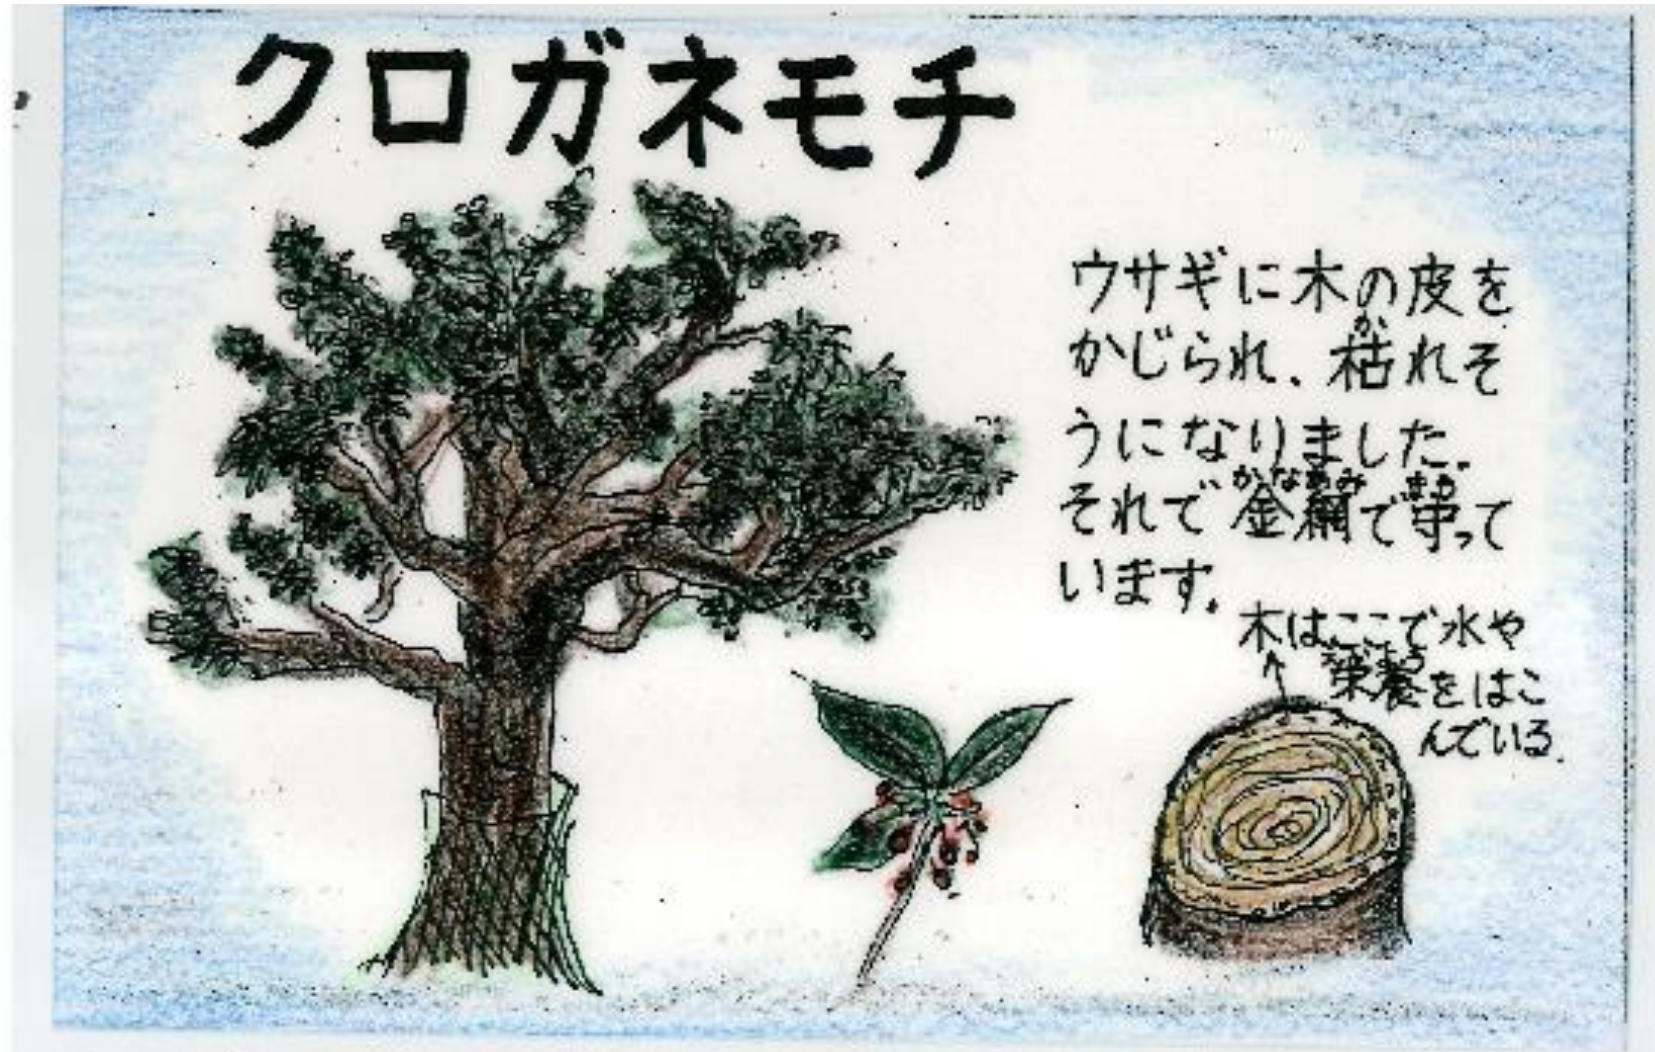 クロガネモチ
ウサギに木の皮を
かじられ、枯れそ
うになりました。
それで金網で守って
います。
木はここで水や
栄養をはこ
んでいる。